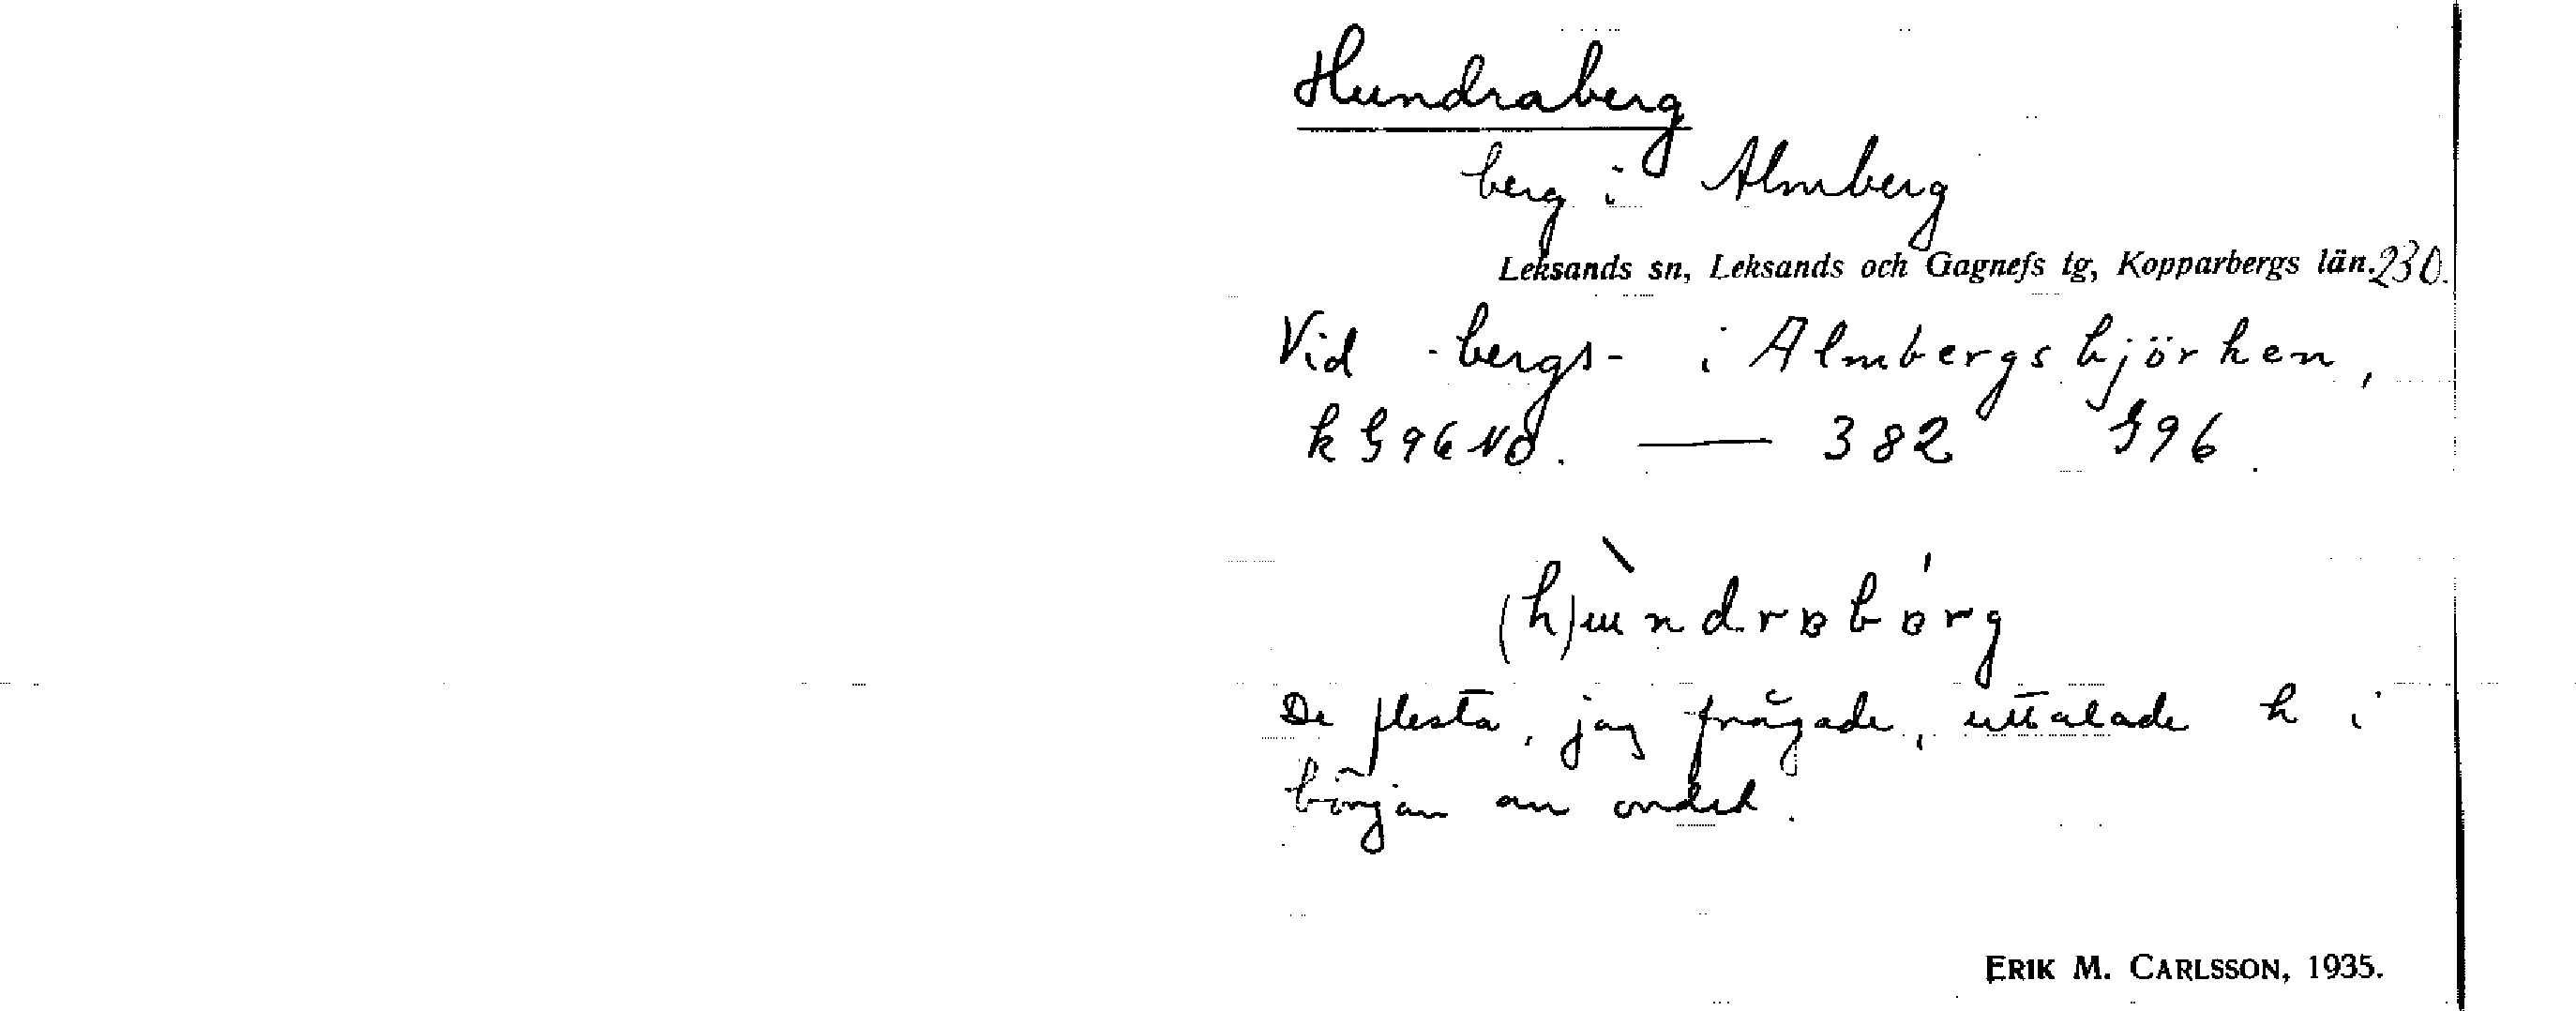 Hundraberg
berg i Almberg
Leksands sn, Leksands och Gagnefs tg, Kopparbergs län. 230.
Vid -bergs- i Almbergsbjörken,
k G96 NO. — 382 G96.
(h)ɯ̀ndrɐbɐ́rg
De flesta, jag frågade, uttalade h i
början av ordet.
ERIK M. CARLSSON, 1935.